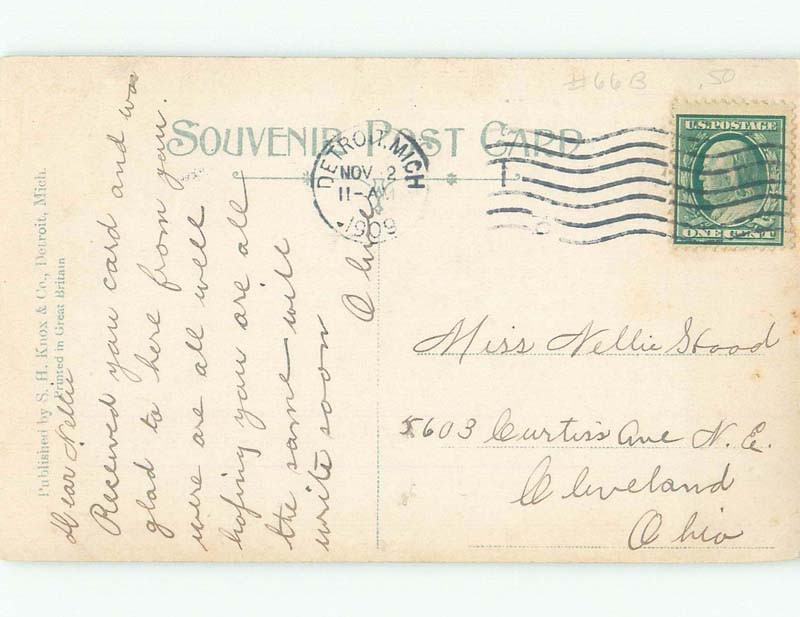 #66B .50
SOUVENIR POST CARD
DETROIT, MICH
NOV 2
11-AM
1909
U.S. POSTAGE
ONE CENT
Published by S. H. Knox & Co., Detroit, Mich.
Printed in Great Britain
Dear Nellie
Received you card and was
glad to here from you.
were are all well
hoping you are all
the same will
write soon
Miss Nellie Stood
5603 Curtiss Ave N.E.
Cleveland
Ohio